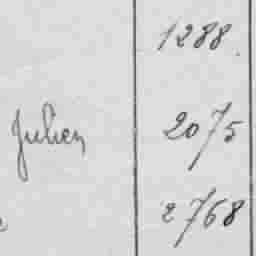 1288.
Julien 2075
2768